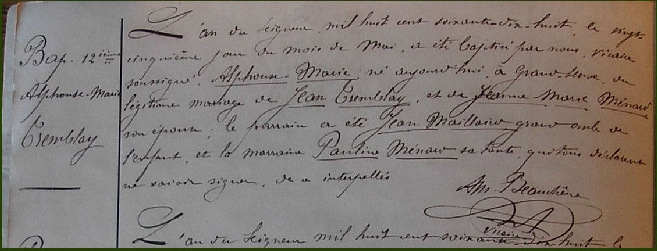 L'an du Seigneur mil huit cent soixante-dix-huit, le vingt-
Bap. 12ième
cinquième jour du mois de Mai, a été baptisé par nous, vicaire
soussigné, Alphonse Marie né aujourd'hui, à Grand', du
Alphonse-Marie
légitime mariage de Jean Tremblay, et de Jeanne Marie Ménard
Tremblay
son épouse; le parrain a été Jean Maillard grand oncle de
l'enfant, et la marraine Pauline Ménard sa tante qui tous déclarent
ne savoir signer, de ce interpellés
Am. Beaudière
Vicaire
L'an du Seigneur mil huit cent soixante dix huit le